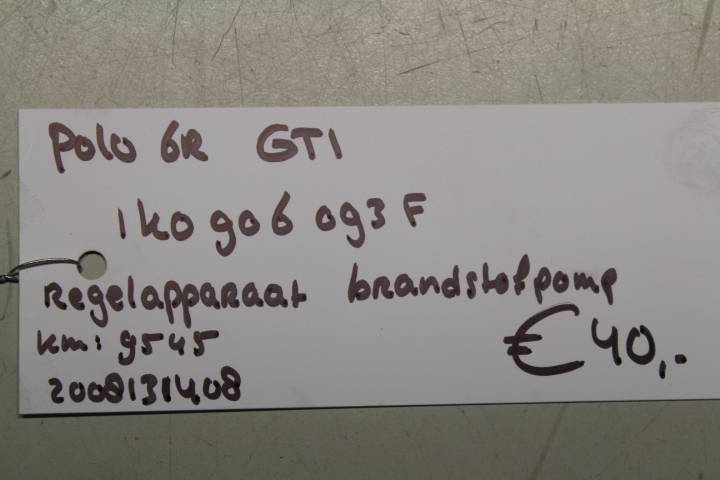 Polo 6R GTI
1K0 906 093 F
Regelapparaat brandstofpomp
km: 9545
€ 40,-
2008131408